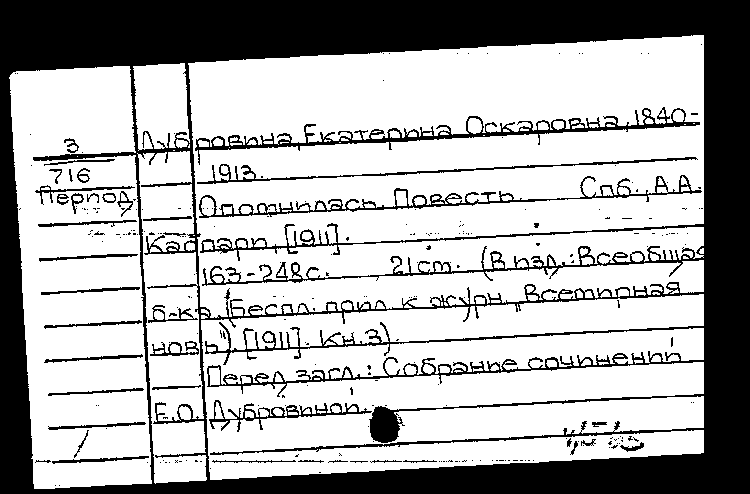 З Дубровина, Екатерина Оскаровна, 1840-
716 1913.
Период. Опомнилась. Повесть. Спб., А.А.
Каспари, [1911].
163-248с. , 21см. (В изд.: Всеобщая
б-ка. (Беспл. прил. к журн. „Всемирная
новь") [1911]. Кн.3).
Перед загл.: Собрание сочинений
Е.О. Дубровиной.